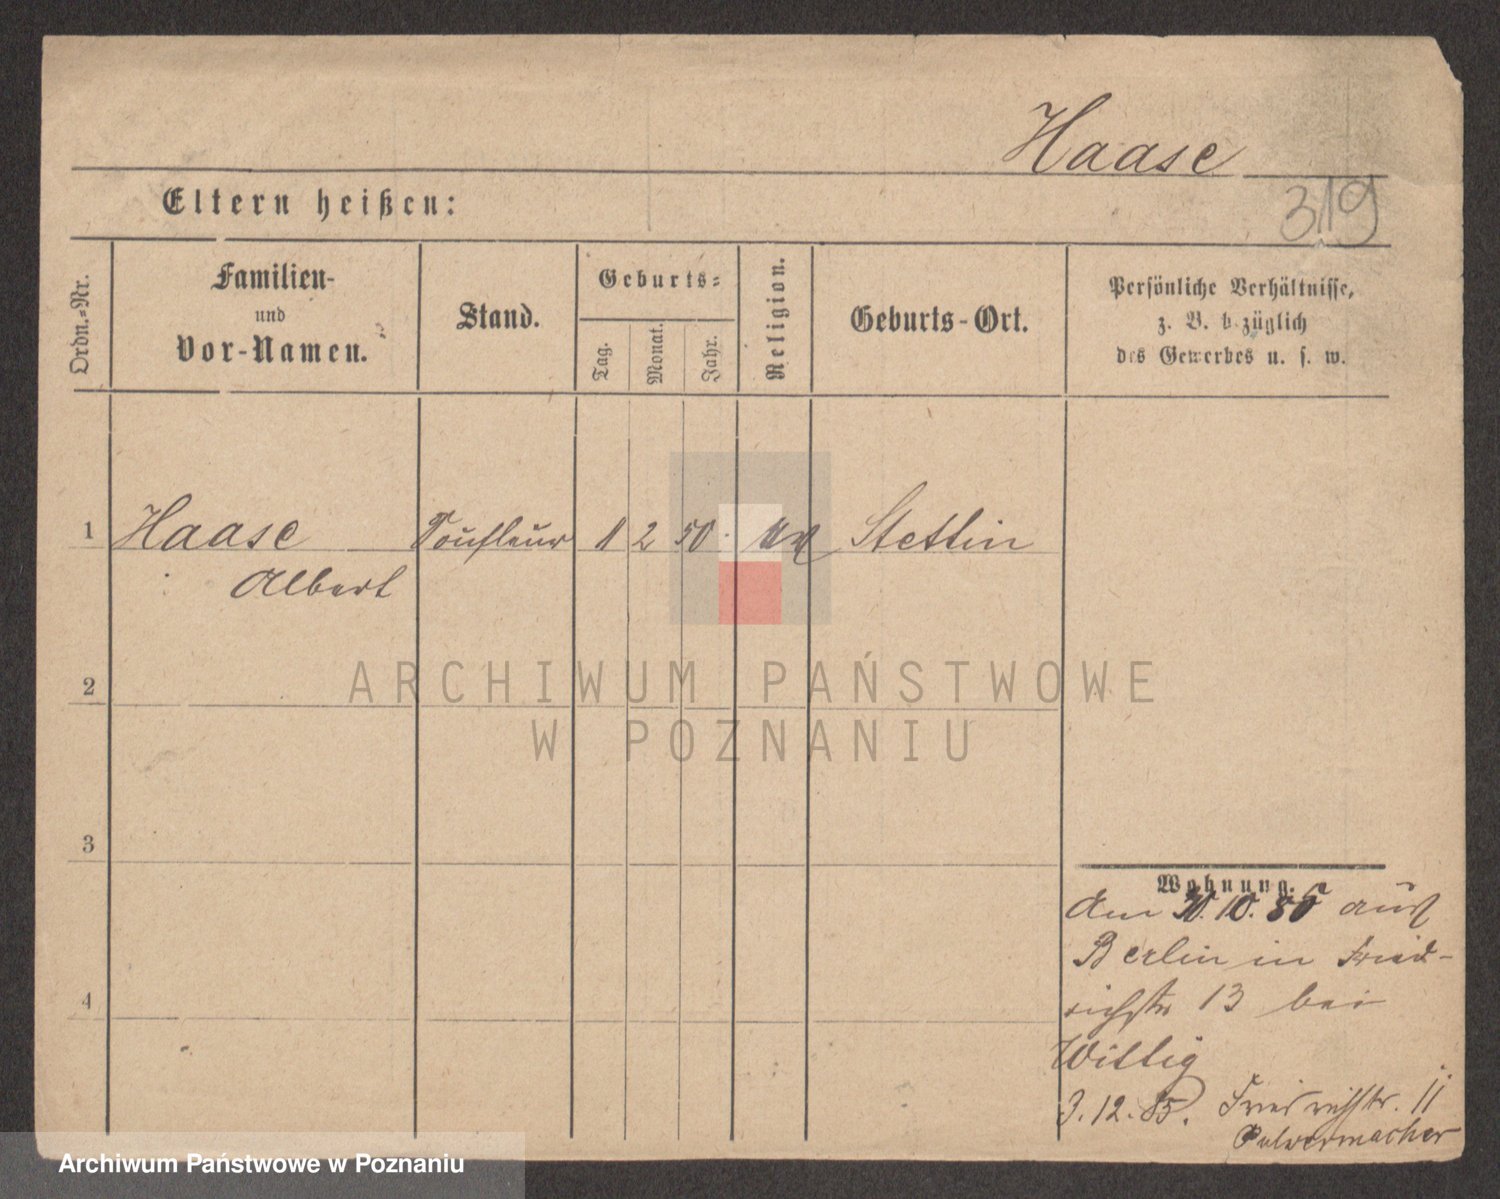 Haase
319
Eltern heißen:
Ordn.-Nr.
Familien-
und
Vor-Namen.
Stand.
Geburts-
Tag.
Monat.
Jahr.
Religion.
Geburts-Ort.
Persönliche Verhältnisse,
z. B. bezüglich
des Gewerbes u. s. w.
1 Haase Soufleur 1 2 50. Stettin
Albert
2
3
4
ARCHIWUM PAŃSTWOWE
W POZNANIU
Wohnung.
Am 30.10.85 aus
Berlin in Fried-
richstr 13 bei
Wittig
3.12.85. Friedrichstr. 11
Pulvermacher
Archiwum Państwowe w Poznaniu